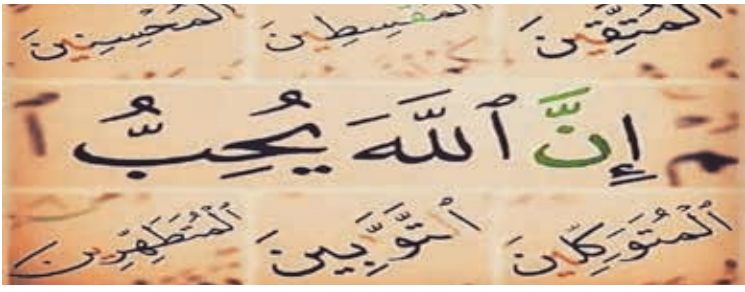 المتقين المقسطين المحسنين
إِنَّ ٱللَّهَ يُحِبُّ
ٱلْمُتَوَكِّلِينَ ٱلتَّوَّٰبِينَ ٱلْمُتَطَهِّرِينَ